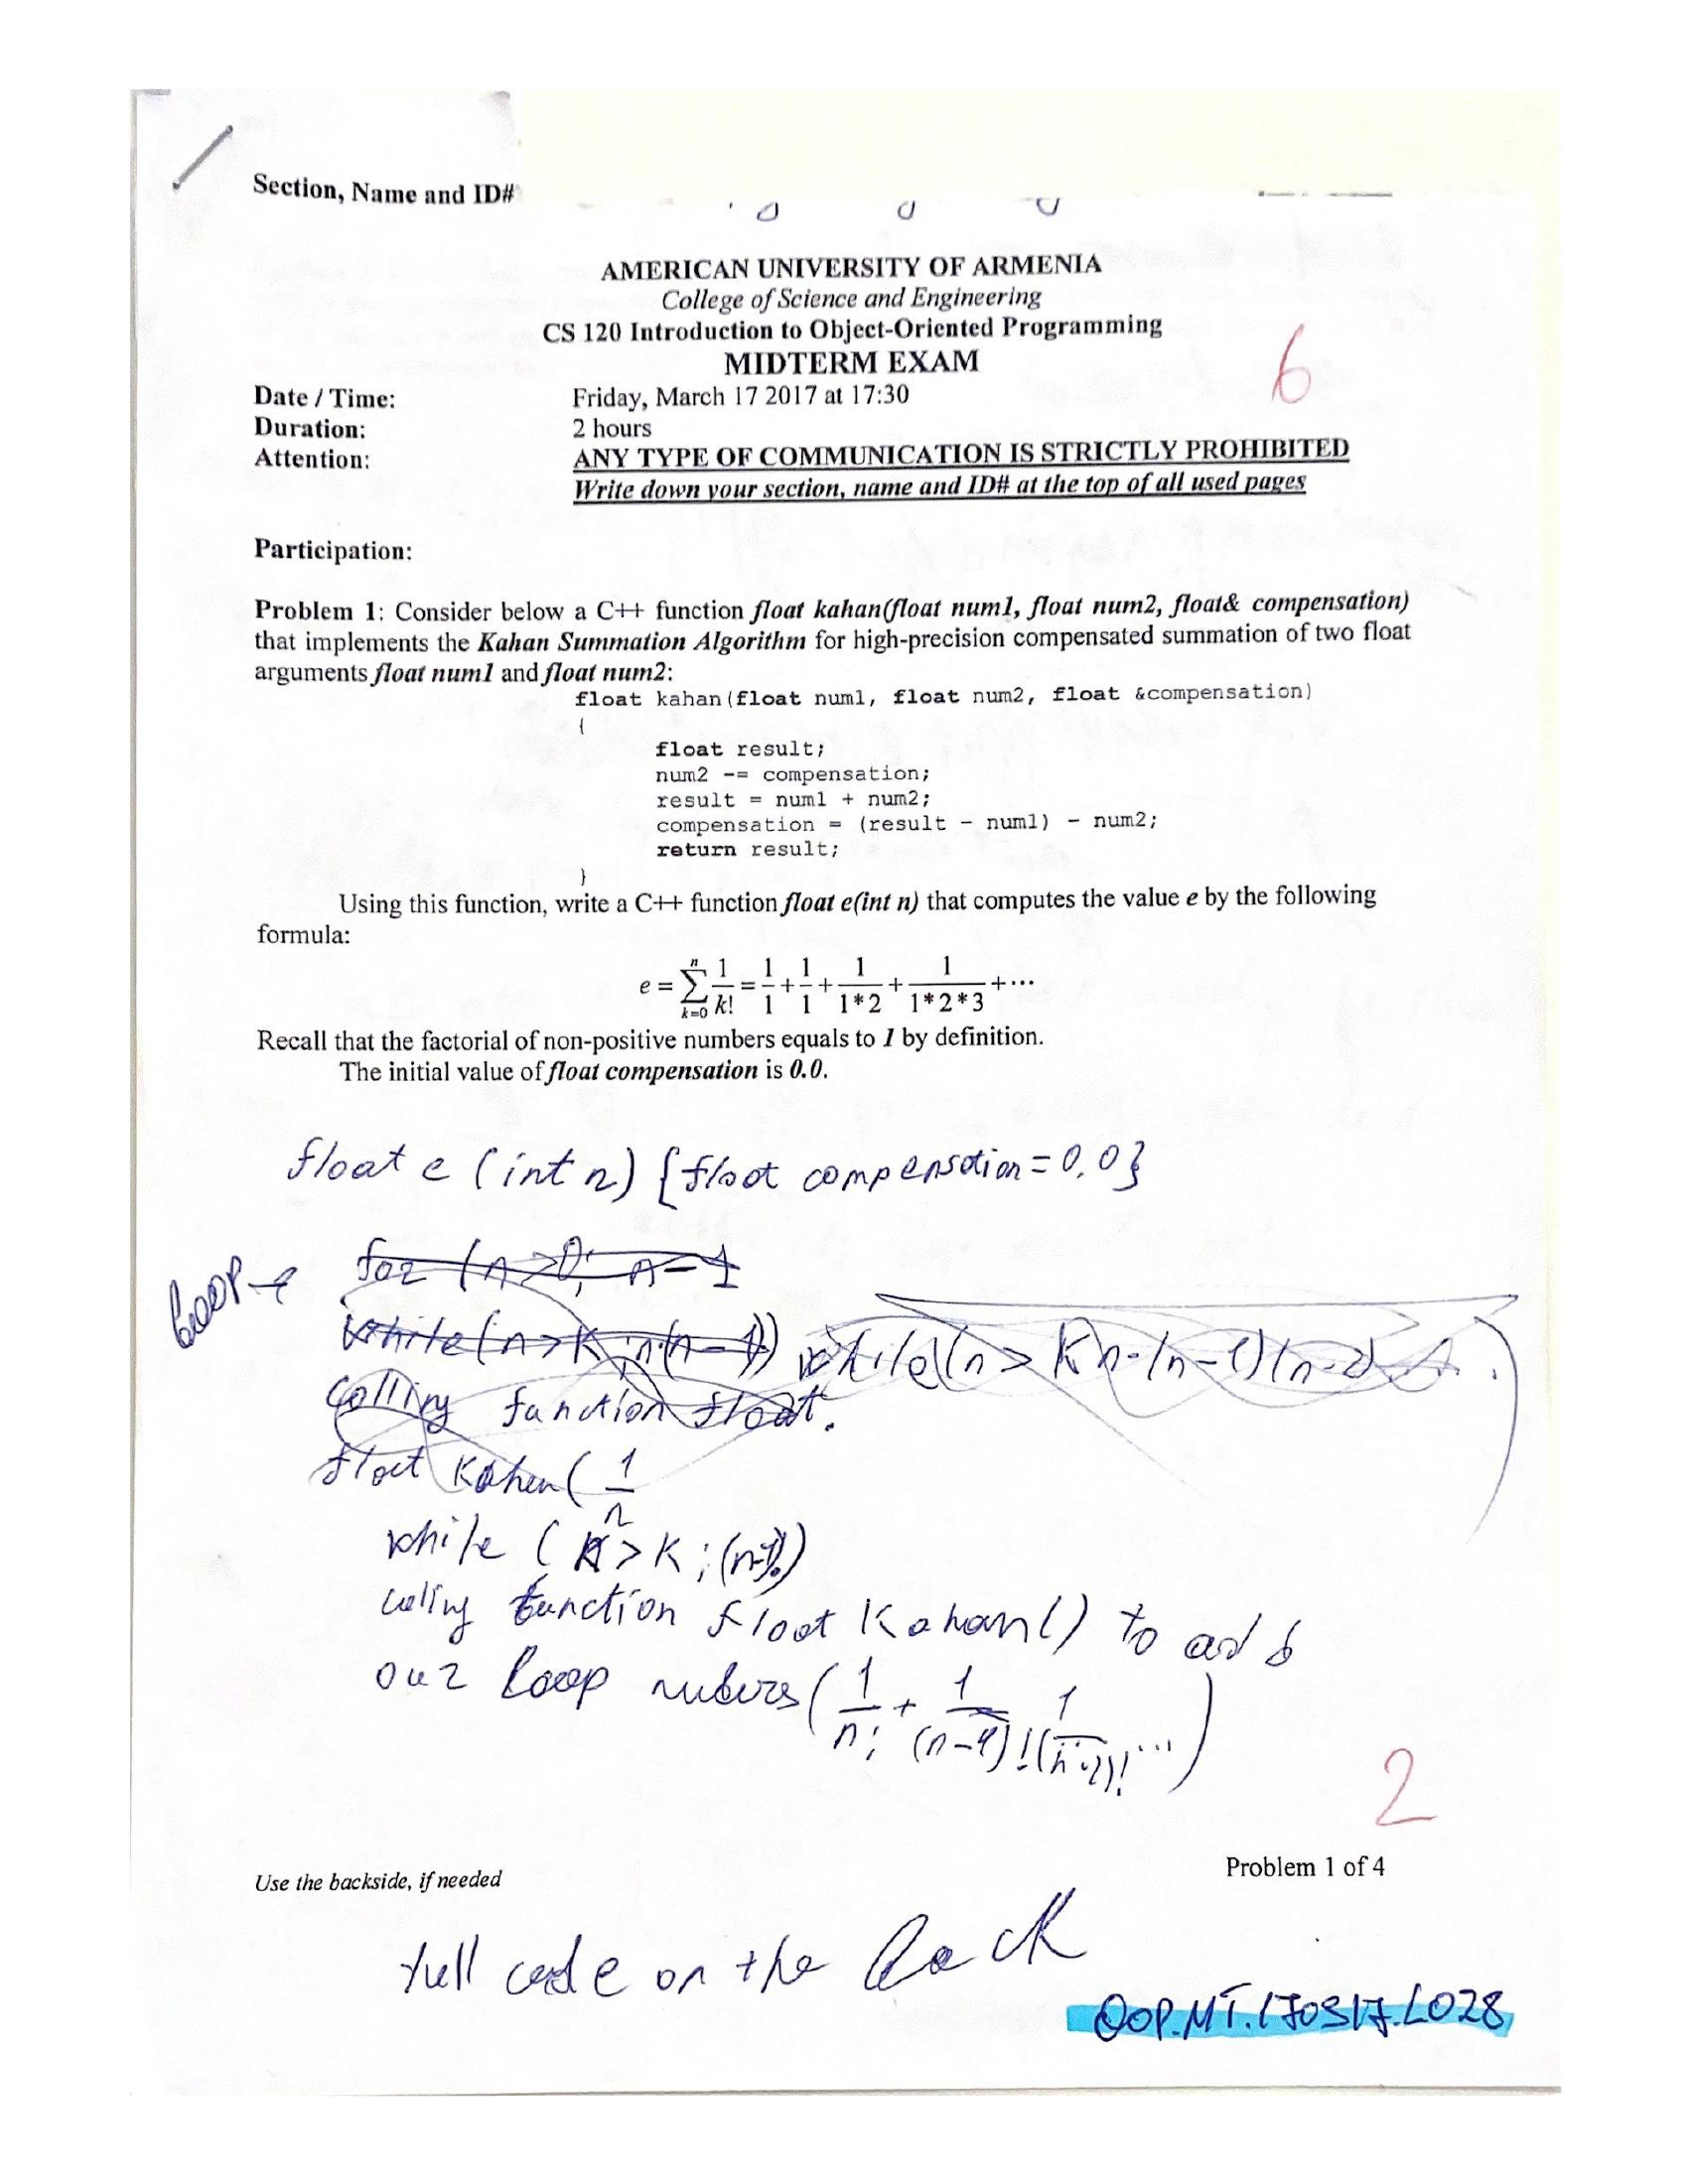 Section, Name and ID#
AMERICAN UNIVERSITY OF ARMENIA
College of Science and Engineering
CS 120 Introduction to Object-Oriented Programming
MIDTERM EXAM
6
Date / Time: Friday, March 17 2017 at 17:30
Duration: 2 hours
Attention: ANY TYPE OF COMMUNICATION IS STRICTLY PROHIBITED
Write down your section, name and ID# at the top of all used pages
Participation:
Problem 1: Consider below a C++ function float kahan(float num1, float num2, float& compensation)
that implements the Kahan Summation Algorithm for high-precision compensated summation of two float
arguments float num1 and float num2:
float kahan(float num1, float num2, float &compensation)
{
float result;
num2 -= compensation;
result = num1 + num2;
compensation = (result - num1) - num2;
return result;
}
Using this function, write a C++ function float e(int n) that computes the value e by the following
formula:
e = ∑_{k=0}^{n} 1/k! = 1/1 + 1/1 + 1/1*2 + 1/1*2*3 + ⋯
Recall that the factorial of non-positive numbers equals to 1 by definition.
The initial value of float compensation is 0.0.
float e (int n) {float compensation = 0.0}
Loop
for (n>0; n-1
while(n>K; n(n-1)) while(n>K n·(n-1)(n-2)
calling function float.
float Kahen( 1/n
while ( n>K ; (n-1)!)
calling function float Kahan() to add
our loop nubers ( 1/n! + 1/(n-1)! 1/(n-2)! ... )
2
Use the backside, if needed
Problem 1 of 4
full code on the back
OOP.MT.170317.L028